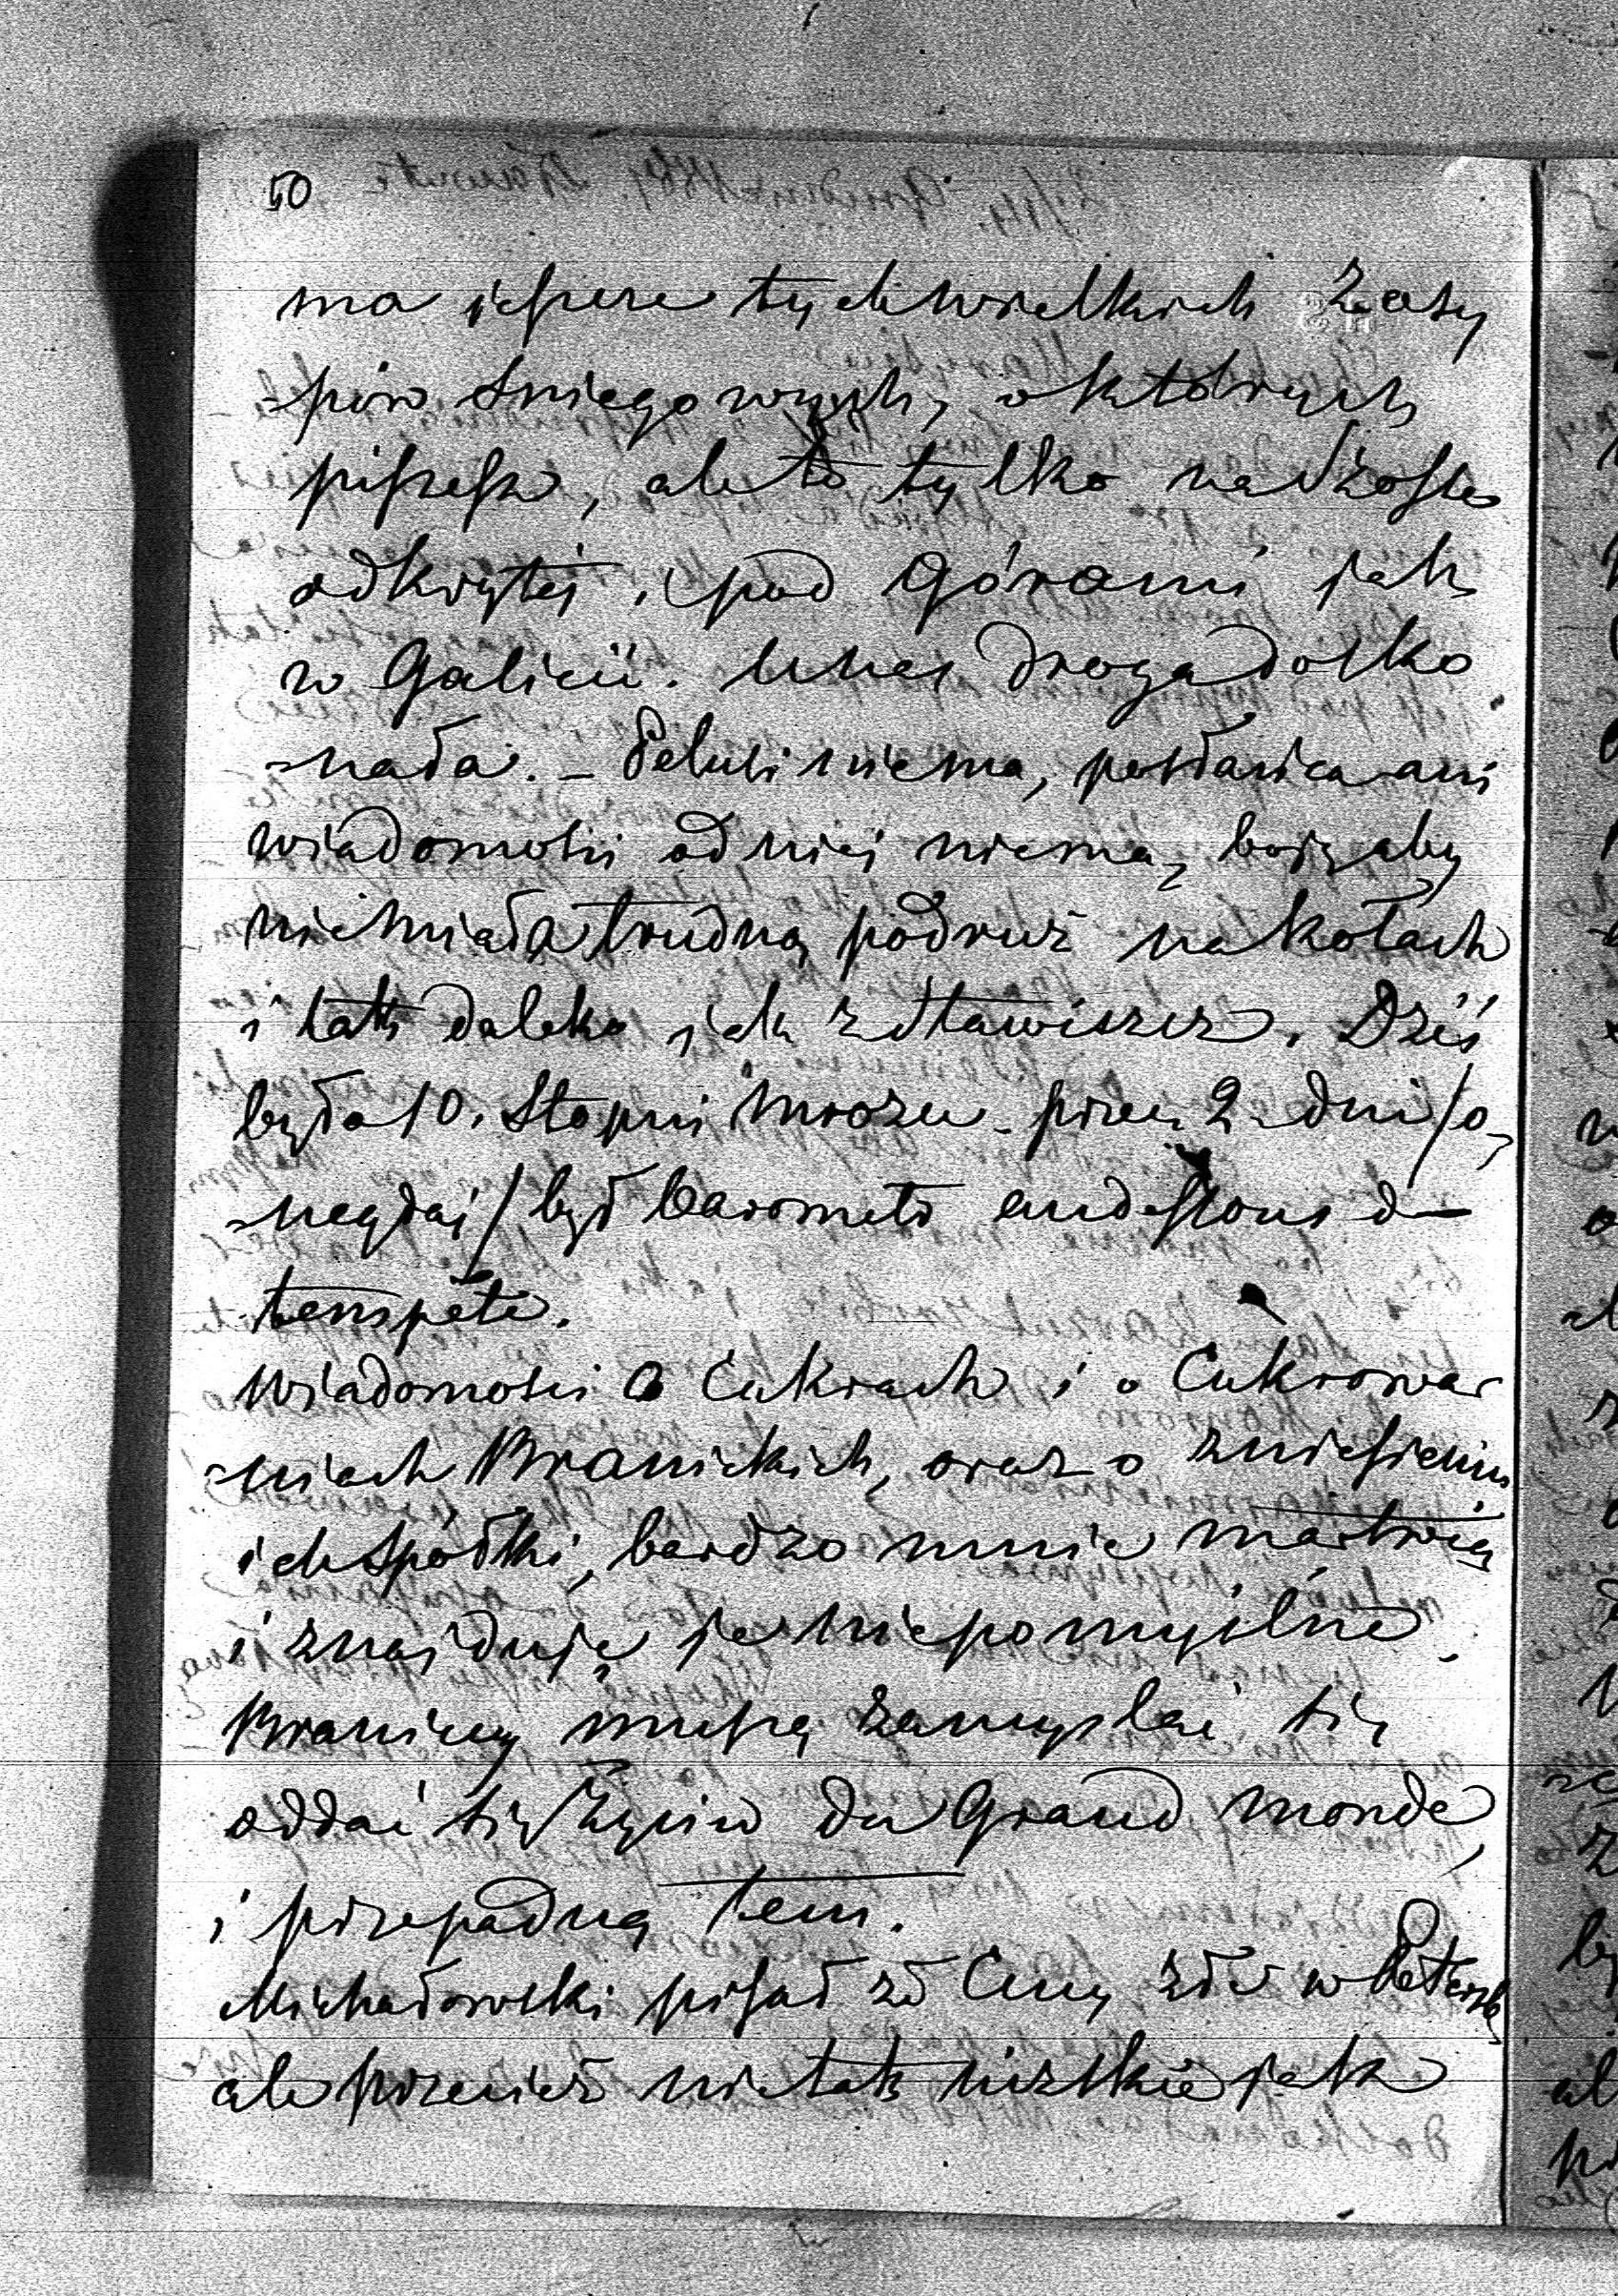 50
ma jeszcze tych wielkich zasy
-pów sniegowych, o których
piszesz, ale to tylko na
odkrytej i pod Górami jak
w Galicii. U nas droga dosko
-nała. – Peluti niema, posłańca ani
wiadomości od niej niema, boję aby
nie miała trudną podruż na kołach
i tak daleko jak z Stawiszcz. Dziś
było 10. Stopni mrozu – przez 2 dni /o-
-negdaj/ był barometr audessous d
tempête.
Wiadomości o Cukrach i o Cukrowar
-niach Branickich, oraz o zniesieniu
ich Spółki, bardzo mnie martwią
i znajduję je niepomyślne.
Braniccy muszą zamyslać się
oddać się życiu du Grand monde,
i przepadną tem.
Michałowski pisał że Ceny złe w Petersb
ale przecież nie tak nizkie jak